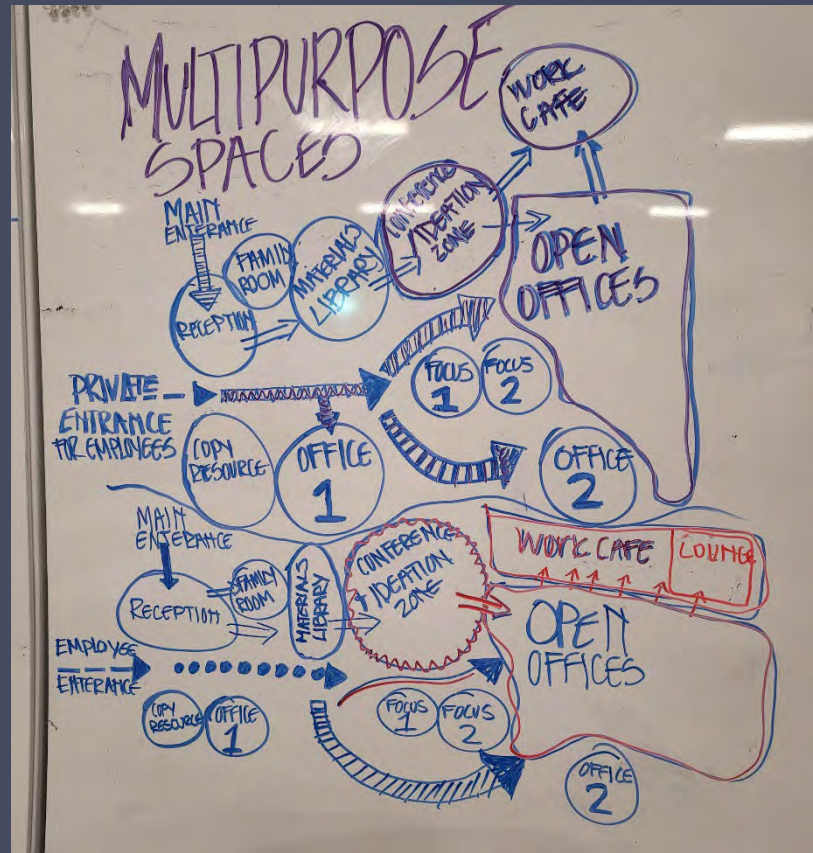 MULTIPURPOSE
SPACES
WORK
CAFE
MAIN
ENTERANCE
FAMILY
ROOM
RECEPTION
MATERIALS
LIBRARY
CONFERENCE
/IDEATION
ZONE
OPEN
OFFICES
PRIVATE
ENTRANCE
FOR EMPLOYEES
FOCUS
1
FOCUS
2
COPY
RESOURCE
OFFICE
1
OFFICE
2
MAIN
ENTERANCE
RECEPTION
FAMILY
ROOM
MATERIALS
LIBRARY
CONFERENCE
+ IDEATION
ZONE
WORK CAFE
LOUNGE
OPEN
OFFICES
EMPLOYEE
ENTERANCE
COPY
RESOURCE
OFFICE
1
FOCUS
1
FOCUS
2
OFFICE
2